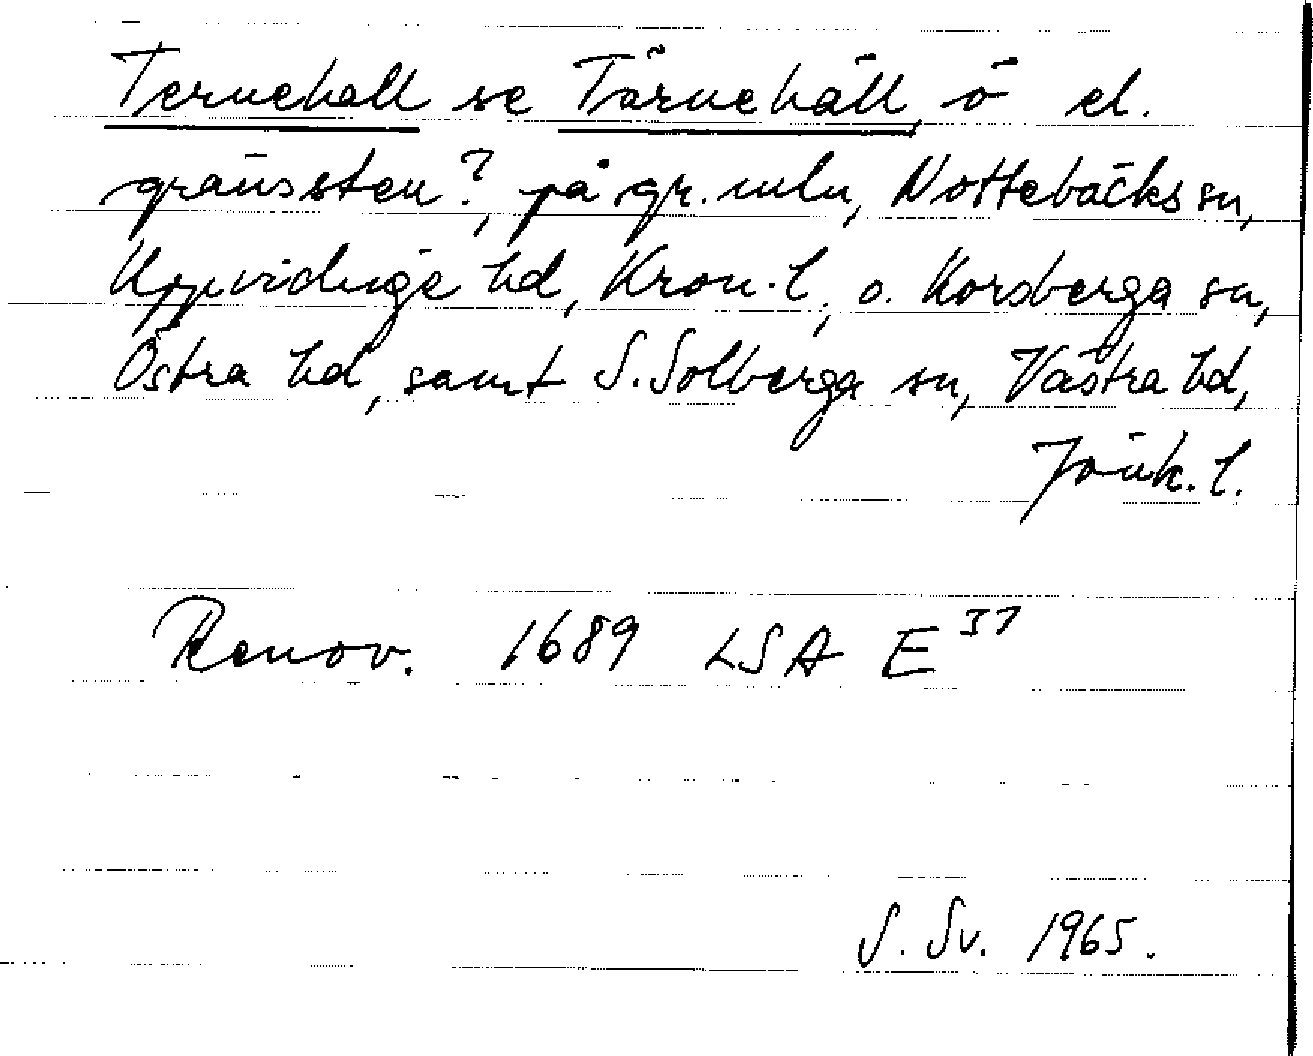 Ternehall se Tärnehäll, ö el.
gränssten?, på gr. mln, Nottebäcks sn,
Uppvidinge hd, Kron. l., o. Korsberga sn,
Östra hd, samt S. Solberga sn, Västra hd,
Jönk. l.
Renov. 1689 LSA E³⁷
S. Sv. 1965.